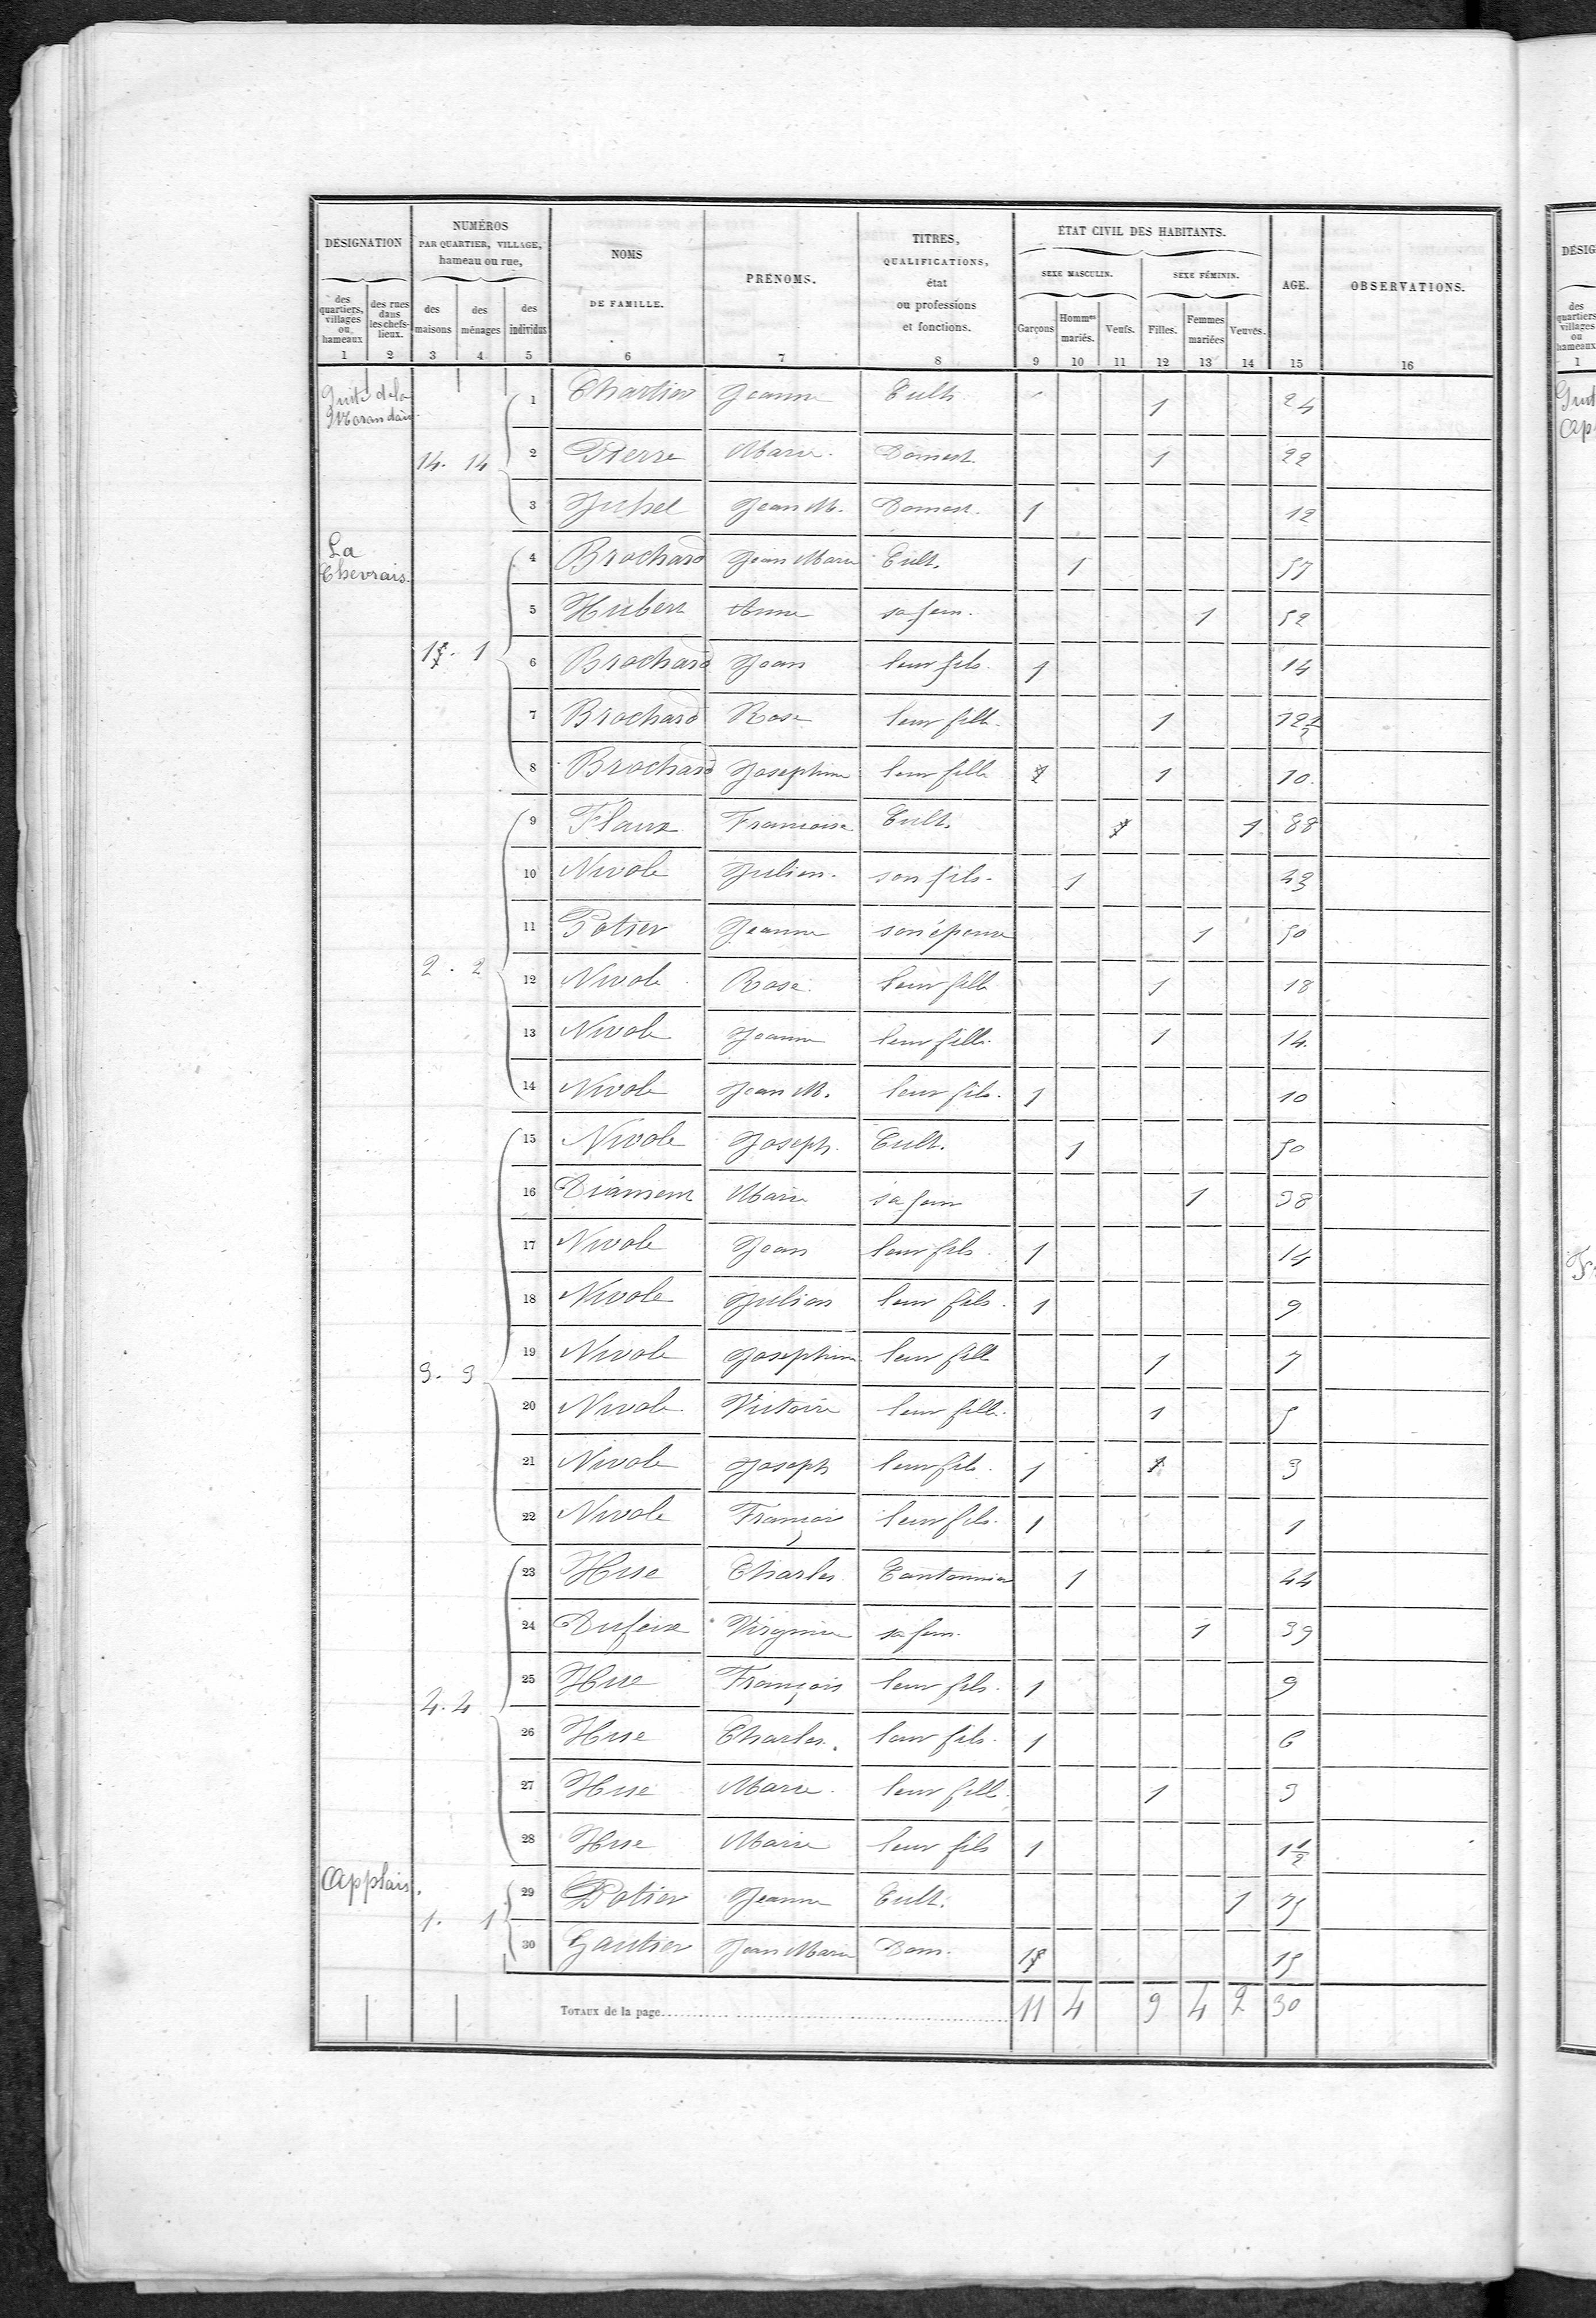 DÉSIGNATION
NUMÉROS
PAR QUARTIER, VILLAGE,
hameau ou rue,
NOMS
DE FAMILLE.
PRÉNOMS.
TITRES,
QUALIFICATIONS,
état
ou professions
et fonctions.
ÉTAT CIVIL DES HABITANTS.
SEXE MASCULIN.
SEXE FÉMININ.
AGE.
OBSERVATIONS.
des quartiers, villages ou hameaux
des rues dans les chefs-lieux.
des maisons
des ménages
des individus
Garçons
Hommes mariés.
Veufs.
Filles.
Femmes mariées
Veuves.
1 2 3 4 5 6 7 8 9 10 11 12 13 14 15 16
1 Chartier Jeanne Cult. 1 24
14. 14 2 Pierre Marie. Domest. 1 22
3 Juhel Jean M. Domest. 1 12
La Chevrais. 4 Brochard Jean Marie Cult. 1 57
5 Hubert Anne sa fem. 1 52
1. 1 6 Brochard Jean leur fils. 1 14
7 Brochard Rose leur fille. 1 12
8 Brochard Josephine leur fille 1 10.
9 Flaux Francoise Cult. 1 88
10 Nivole Julien. son fils. 1 43
11 Potier Jeanne son épouse 1 50
2. 2 12 Nivole Rose leur fille 1 18
13 Nivole Jeanne leur fille. 1 14.
14 Nivole Jean M. leur fils. 1 10
15 Nivole Joseph Cult. 1 50
16 Marie sa fem 1 38
17 Nivole Jean leur fils. 1 14
18 Nivole Julien leur fils. 1 9
3. 3 19 Nivole Josephine leur fille 1 7
20 Nivole Victoire leur fille. 1 5
21 Nivole Joseph leur fils. 1 3
22 Nivole François leur fils. 1 1
23 Hue Charles Cantonnier 1 44
24 Dufeix Virginie sa fem. 1 39
4. 4 25 Hue François leur fils. 1 9
26 Hue Charles. leur fils. 1 6
27 Hue Marie. leur fille 1 3
28 Hue Marie leur fils 1 1 1/2
Applais. 1. 1 29 Potier Jeanne Cult. 1 75
30 Gautier Jean Marie Dom. 1 15
TOTAUX de la page 11 4 9 4 2 30